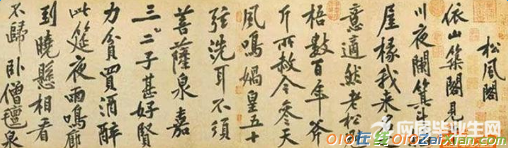 松風閣
依山築閣見
川夜闌箕
屋椽我來名
意適然老松
梧數百年斧
斤所赦今參天
風鳴媧皇五十
弦洗耳不須
菩薩泉嘉
三二子甚好賢
力貧買酒醉
此筵夜雨鳴廊
到曉懸相看
不歸臥僧氈泉
应届毕业生